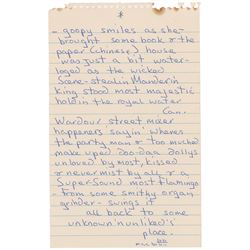 *
- goopy smiles as she-
brought some book & the
paper (chinese) house
was just a bit water-
loged as the wicked
Scene-stealin Manderin
king stood most majestic
hold in the royal water
Can.
Wardour street mixer
happeners sayin' wheres
the party man & too muched
make uped doo-das. dollys
unloved by most, kissed
& never mist by all, & a
Super-Sound most flamingo
- from some smithy organ
grinder - swings it
all back to some
unknown nunliked's
place.